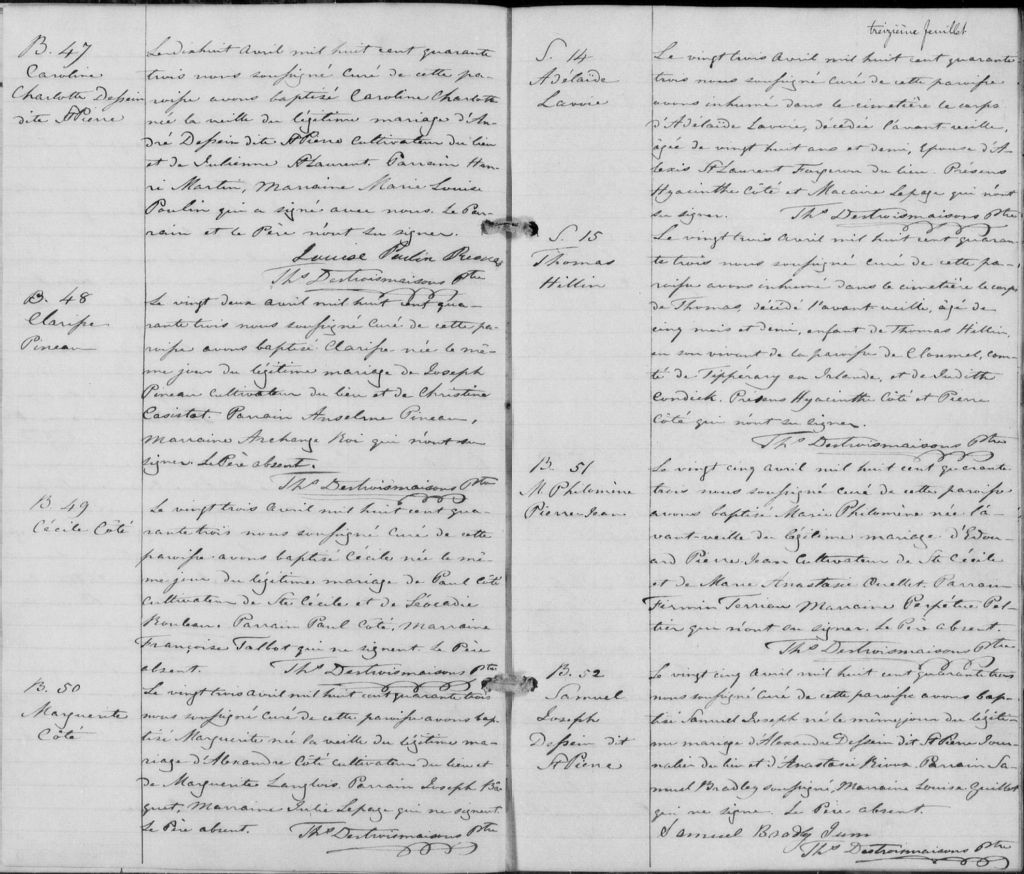 B. 47
Caroline
Charlotte Dessein
dite St Pierre
Le dixhuit Avril mil huit cent quarante
trois nous soussigné curé de cette pa-
roisse avons baptisé Caroline Charlotte
née la veille du légitime mariage d'An-
dré Dessein dit St Pierre Cultivateur du lieu
et de Julienne St Laurent. Parrain Hen-
ri Martin, Marraine Marie Louise
Poulin qui a signé avec nous. Le Par-
rain et le Père n'ont su signer.
Louise Poulin
Ths Destroismaisons Ptre
B. 48
Clarisse
Pineau
Le vingt deux avril mil huit cent qua-
rante trois nous soussigné Curé de cette pa-
roisse avons baptisé Clarisse née le mê-
me jour du légitime mariage de Joseph
Pineau Cultivateur du lieu et de Christine
Casistat. Parrain Anselme Pineau,
Marraine Archange Roi qui n'ont su
signer. Le Père absent.
Ths Destroismaisons Ptre
B. 49
Cécile Côté
Le vingt trois Avril mil huit cent qua-
rante trois nous soussigné Curé de cette
paroisse avons baptisé Cécile née le mê-
me jour du légitime mariage de Paul Côté
Cultivateur de Ste Cécile et de Léocadie
Rouleau. Parrain Paul Coté, Marraine
Françoise Talbot qui ne signent. Le Père
absent. Ths Destroismaisons Ptre
B. 50
Marguerite
Côté
Le vingt trois Avril mil huit cent quarante trois
nous soussigné Curé de cette paroisse avons bap-
tisé Marguerite née la veille du légitime ma-
riage d'Alexandre Côté cultivateur du lieu et
de Marguerite Langlois. Parrain Joseph Ba-
quet, Marraine Julie Lepage qui ne signent.
Le Père absent. Ths Destroismaisons Ptre
treizième feuillet
S. 14
Adélaide
Lavoie
Le vingt trois Avril mil huit cent quarante
trois nous soussigné curé de cette paroisse
avons inhumé dans le cimetière le corps
d'Adélaide Lavoie, décédée l'avant veille,
âgée de vingt huit ans et demi, Epouse d'A-
lexis St Laurent Forgeron du lieu. Présens
Hyacinthe Côté et Macaire Lepage qui n'ont
su signer. Ths Destroismaisons Ptre
S. 15
Thomas
Hillin
Le vingt trois Avril mil huit cent quaran-
te trois nous soussigné curé de cette pa-
roisse avons inhumé dans le cimetière le corps
de Thomas, décédé l'avant veille, âgé de
cinq mois et demi, enfant de Thomas Hillin,
en son vivant de la paroisse de Clonmel, com-
té de Tippérary en Irlande, et de Judith
Condick. Présens Hyacinthe Côté et Pierre
Côté qui n'ont su signer.
Ths Destroismaisons Ptre
B. 51
M. Philomène
Pierre-Jean
Le vingt cinq Avril mil huit cent quarante
trois nous soussigné curé de cette paroisse
avons baptisé Marie Philomène née l'a-
vant-veille du légitime mariage d'Edou-
ard Pierre Jean Cultivateur de Ste Cécile
et de Marie Anastasie Ouellet. Parrain
Firmin Terrien Marraine Perpétue Pel-
tier qui n'ont su signer. Le Père absent.
Ths Destroismaisons Ptre
B. 52
Samuel
Joseph
Dessein dit
St Pierre
Le vingt cinq Avril mil huit cent quarante trois
nous soussigné Curé de cette paroisse avons bap-
tisé Samuel Joseph né le même jour du légiti-
me mariage d'Alexandre Dessein dit St Pierre Jour-
nalier du lieu et d'Anastasie Rioux. Parrain Sa-
muel Bradley soussigné, Marraine Louise Quillet
qui ne signe. Le Père absent.
Samuel Bradly Junr
Ths Destroismaisons Ptre